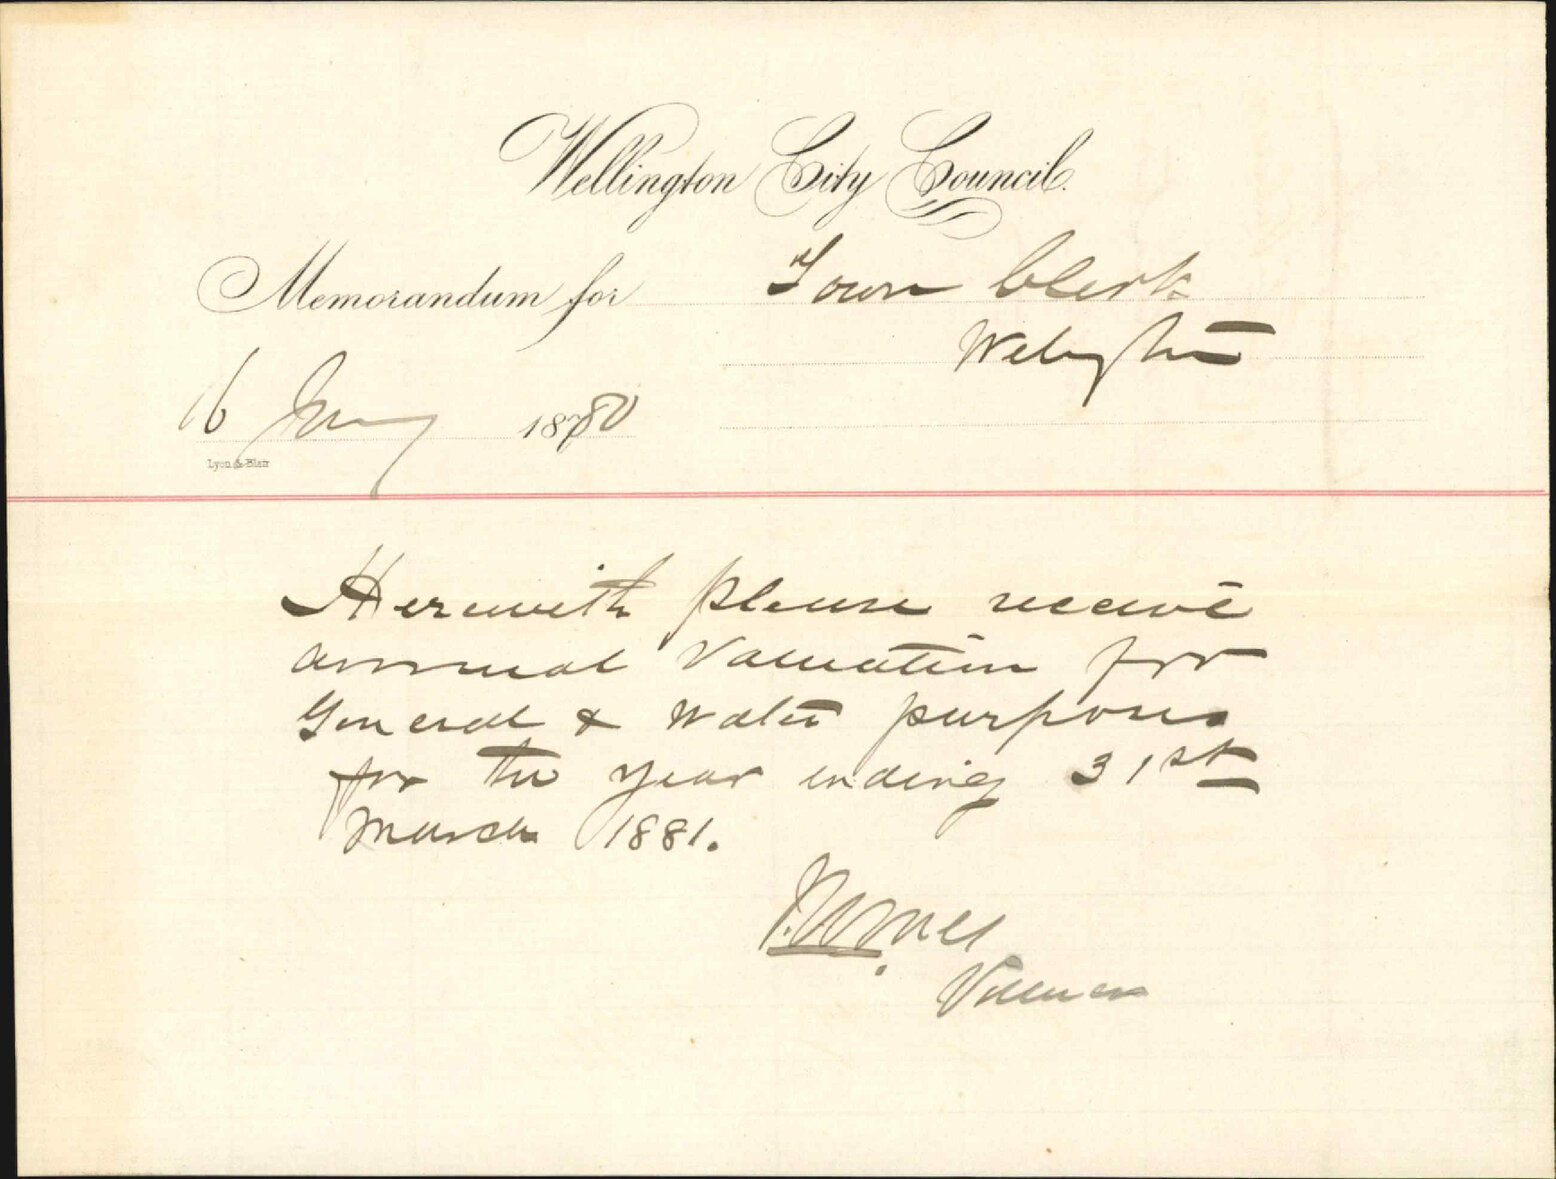 Wellington City Council.
Memorandum for Town Clerk
Wellington
16 Jany 18780
Lyon & Blair
Herewith please receive
annual Valuation for
General & Water purposes
for the year ending 31st
March 1881.
Valuer